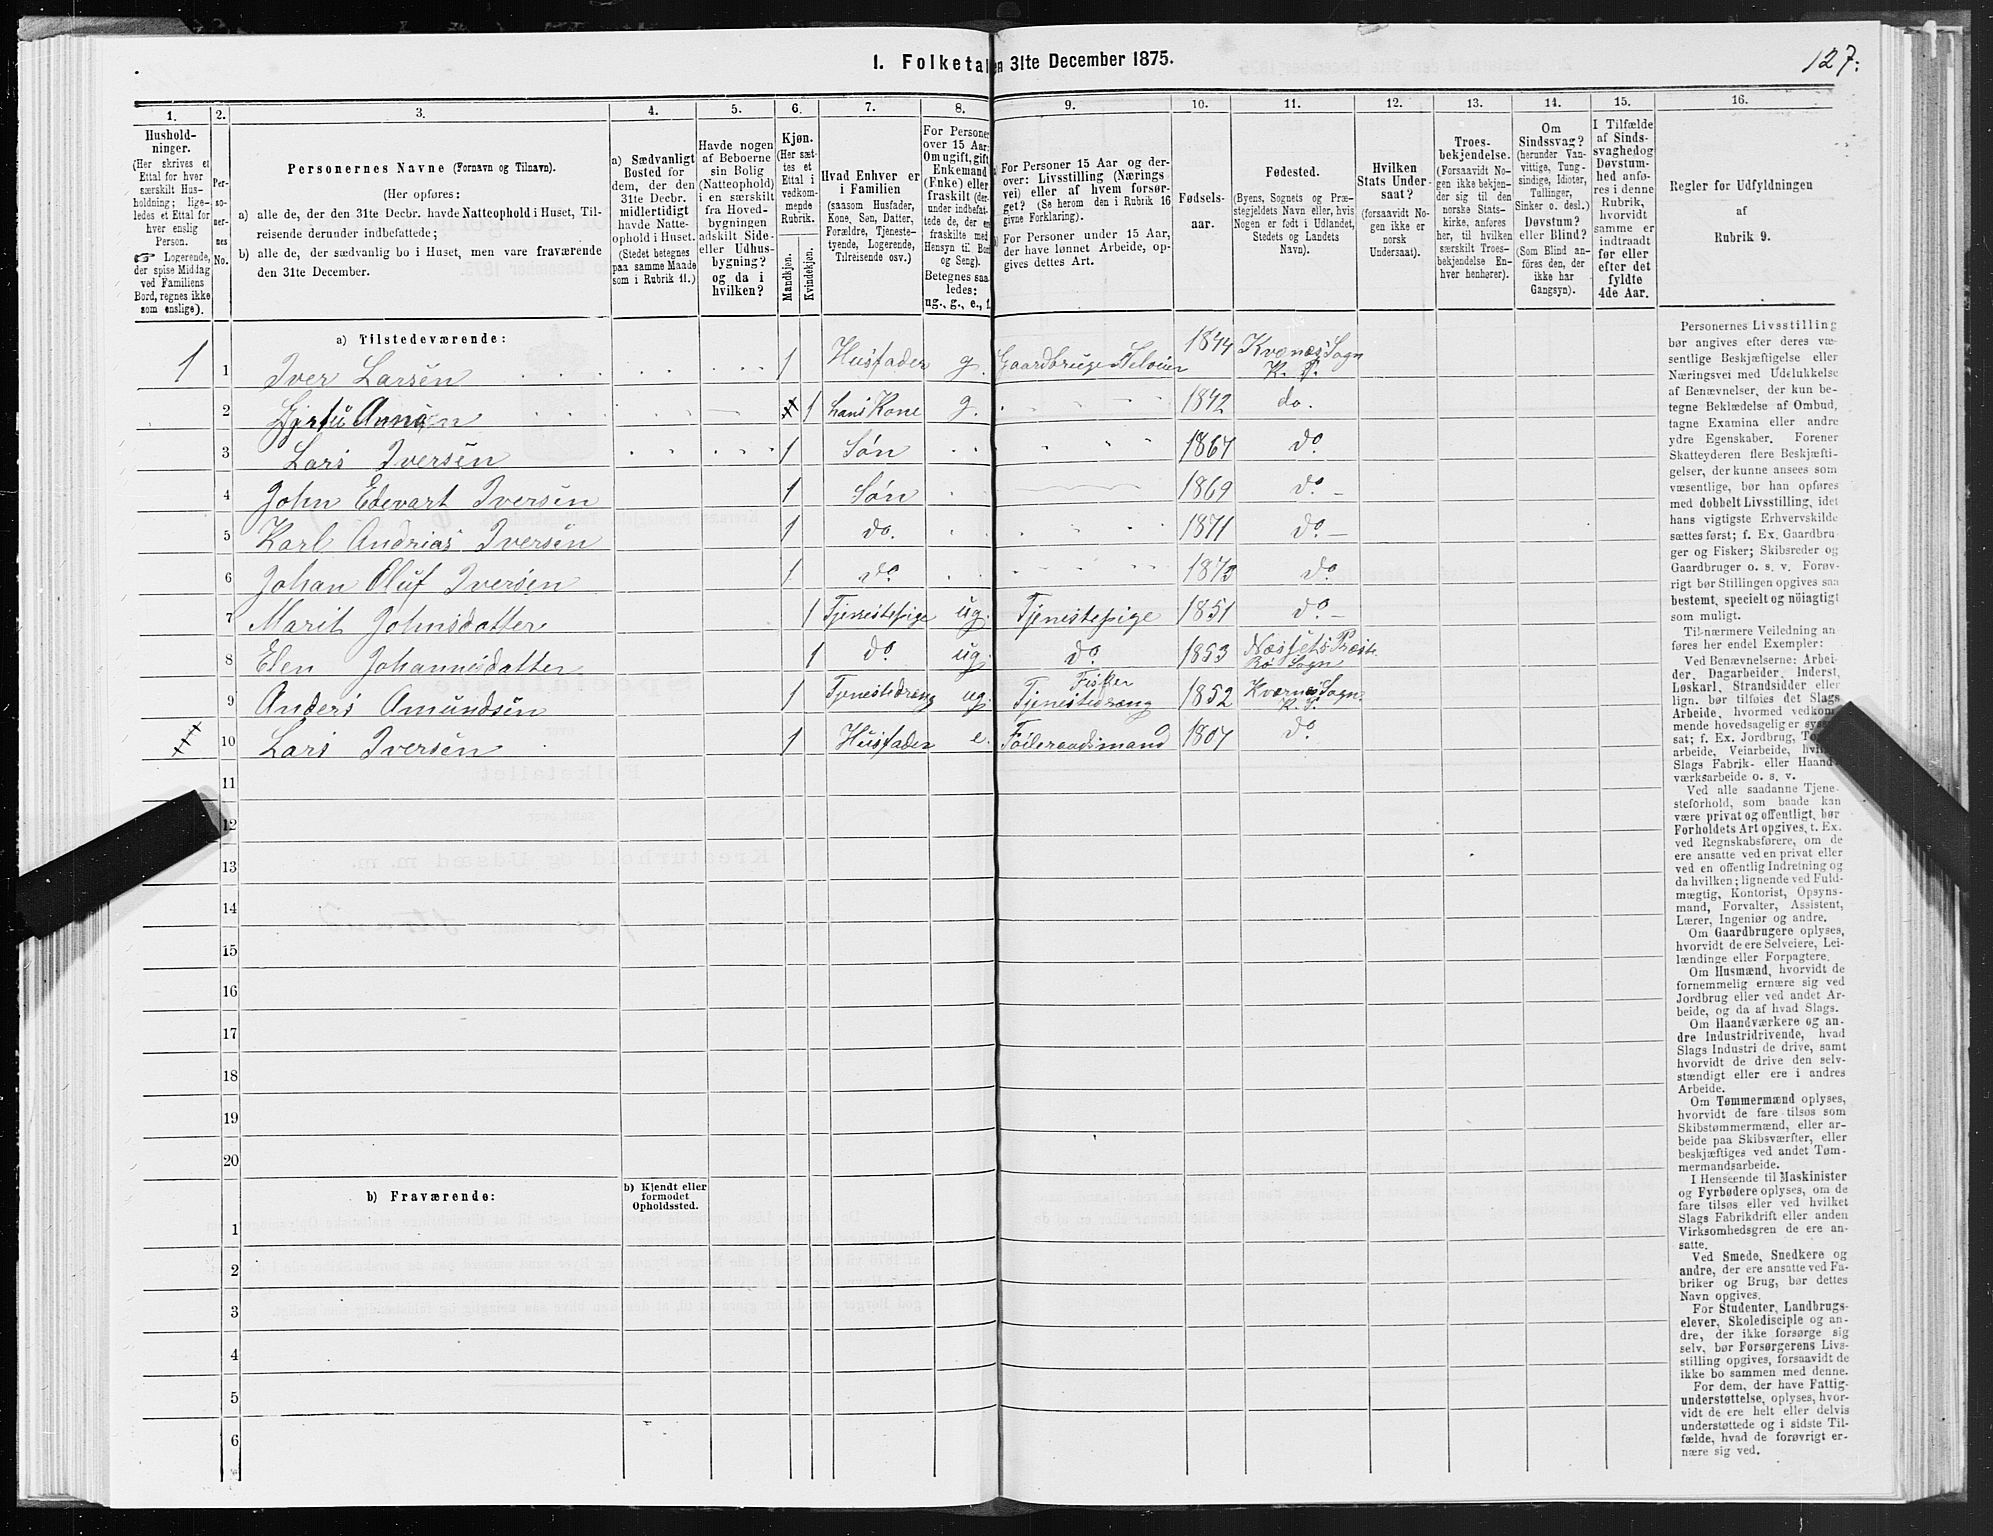 127.
1. Folketal den 31te December 1875.
1. 2. 3. 4. 5. 6. 7. 8. 9. 10. 11. 12. 13. 14. 15. 16.
Hushold-
ninger.
(Her skrives et
Ettal for hver
særskilt Hus-
holdning; lige-
ledes et Ettal for
hver enslig
Person.
☞ Logerende,
der spise Middag
ved Familiens
Bord, regnes ikke
som enslige).
Per-
so-
ner-
nes
No.
Personernes Navne (Fornavn og Tilnavn).
(Her opføres:
a) alle de, der den 31te Decbr. havde Natteophold i Huset, Til-
reisende derunder indbefattede;
b) alle de, der sædvanlig bo i Huset, men vare fraværende
den 31te December.
a) Sædvanligt
Bosted for
dem, der den
31te Decbr.
midlertidigt
havde Natte-
ophold i Huset.
(Stedet betegnes
paa samme Maade
som i Rubrik 11.)
Havde nogen
af Beboerne
sin Bolig
(Natteophold)
i en særskilt
fra Hoved-
bygningen
adskilt Side-
eller Udhus-
bygning?
og da i
hvilken?
Kjøn.
(Her sæt-
tes et
Ettal i
vedkom-
mende
Rubrik.
Mandkjøn.
Kvindekjøn.
Hvad Enhver er
i Familien
(saasom Husfader,
Kone, Søn, Datter,
Forældre, Tjeneste-
tyende, Logerende,
Tilreisende osv.)
For Personer
over 15 Aar:
Om ugift, gift
Enkemand
(Enke) eller
fraskilt (der-
under indbefat-
tede de, der er
fraskilte med
Hensyn til Bord
og Seng).
Betegnes saa-
ledes:
ug., g., e., f.
a) For Personer 15 Aar og der-
over: Livsstilling (Nærings
vei) eller af hvem forsør-
get? (Se herom den i Rubrik 16
givne Forklaring).
b) For Personer under 15 Aar,
der have lønnet Arbeide, op-
gives dettes Art.
Fødsels-
aar.
Fødested.
(Byens, Sognets og Præ-
stegjeldets Navn eller, hvis
Nogen er født i Udlandet,
Stedets og Landets
Navn).
Hvilken
Stats Under-
saat?
(forsaavidt No-
gen ikke er
norsk
Undersaat).
Troes-
bekjendelse.
(Forsaavidt No-
gen ikke bekjen-
der sig til den
norske Stats-
kirke, anføres
her, til hvilken
særskilt Troes-
bekjendelse En-
hver henhører).
Om
Sindssvag?
(herunder Van-
vittige, Tung-
sindige, Idioter,
Tullinger,
Sinker o. desl.)
Døvstum?
eller Blind?
(Som Blind an-
føres den, der
ikke har
Gangsyn).
I Tilfælde
af Sinds-
svaghed og
Døvstum-
hed anfø-
res i denne
Rubrik,
hvorvidt
samme er
indtraadt
før eller
efter det
fyldte
4de Aar.
Regler for Udfyldningen
af
Rubrik 9.
a) Tilstedeværende:
1 1 Iver Larsen 1 Husfader g. Gaardbruge Selveier 1844 Kvernes Sogn K. P.
2 Anna 1 hans Kone g. 1842 do.
3 Lars Iversen 1 Søn 1867 do
4 John Edevart Iversen 1 Søn 1869 do
5 Karl Andrias Iversen 1 do. 1871 do
6 Johan Oluf Iversen 1 do 1873 do
7 Marit Johnsdatter 1 Tjenestepige ug. Tjenestepige 1851 do
8 Elen Johannesdatter 1 do ug. do 1853 Næssets Præste Rø Sogn
9 Anders Amundsen 1 Tjenestedreng ug. Fisker Tjenestedreng 1852 Kvernes Sogn K. P.
10 Lars Iversen 1 Husfader e. Føderaadsmand 1807 do
11
12
13
14
15
16
17
18
19
20
b) Fraværende:
b) Kjendt eller
formodet
Opholdssted.
1
2
3
4
5
6
Personernes Livsstilling
bør angives efter deres væ-
sentlige Beskjæftigelse eller
Næringsvei med Udelukkelse
af Benævnelser, der kun be-
tegne Beklædelse af Ombud,
tagne Examina eller andre
ydre Egenskaber. Forener
Skatteyderen flere Beskjæfti-
gelser, der kunne ansees som
væsentlige, bør han opføres
med dobbelt Livsstilling, idet
hans vigtigste Erhvervskilde
sættes først; f. Ex. Gaardbru-
ger og Fisker; Skibsreder og
Gaardbruger o. s. v. Forøv-
rigt bør Stillingen opgives saa
bestemt, specielt og nöiagtigt
som muligt.
Til nærmere Veiledning an
føres her endel Exempler:
Ved Benævnelserne: Arbei-
der, Dagarbeider, Inderst,
Løskarl, Strandsidder eller
lign. bør tilføies det Slags
Arbeide, hvormed vedkom-
mende hovedsagelig er syssel-
sat; f. Ex. Jordbrug,
arbeide, Veiarbeide,
Slags Fabrik- eller Haand-
værksarbeide o. s. v.
Ved alle saadanne Tjene-
steforhold, som baade kan
være privat og offentligt, bør
Forholdets Art opgives, t. Ex.
ved Regnskabsførere, om de
ere ansatte ved en privat eller
ved en offentlig Indretning og
da hvilken; lignende ved Fuld-
mægtig, Kontorist, Opsyns-
mand, Forvalter, Assistent,
Lærer, Ingeniør og andre.
Om Gaardbrugere oplyses,
hvorvidt de ere Selveiere, Lei-
lændinge eller Forpagtere.
Om Husmænd, hvorvidt de
fornemmelig ernære sig ved
Jordbrug eller ved andet Ar-
beide, og da af hvad Slags.
Om Haandværkere og an-
dre Industridrivende, hvad
Slags Industri de drive, samt
hvorvidt de drive den selv-
stændigt eller ere i andres
Arbeide.
Om Tømmermænd oplyses,
hvorvidt de fare tilsøs som
Skibstømmermænd, eller ar-
beide paa Skibsværfter, eller
beskjæftiges ved andet Tøm-
mermandsarbeide.
I Henseende til Maskinister
og Fyrbødere oplyses, om de
fare tilsøs eller ved hvilket
Slags Fabrikdrift eller anden
Virksomhedsgren de ere an-
satte.
Ved Smede, Snedkere og
andre, der ere ansatte ved Fa-
briker og Brug, bør dettes
Navn opgives.
For Studenter, Landbrugs-
elever, Skoledisciple og an-
dre, der ikke forsørge sig
selv, bør Forsørgerens Livs-
stilling opgives, forsaavidt de
ikke bo sammen med denne.
For dem, der have Fattig-
understøttelse, oplyses, hvor-
vidt de ere helt eller delvis
understøttede og i sidste Til-
fælde, hvad de forøvrigt er-
nære sig ved.